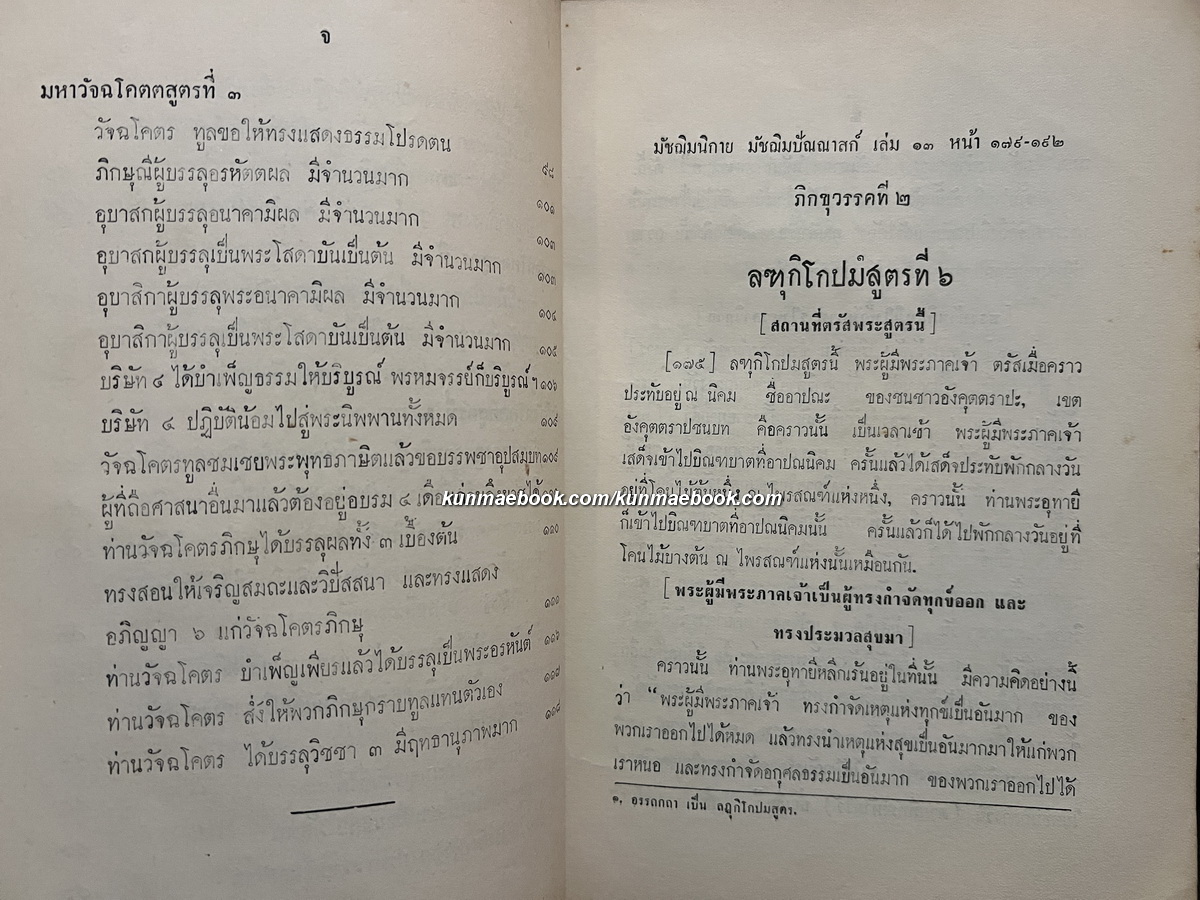 จ
มหาวัจฉโคตตสูตรที่ ๓
วัจฉโคตร ทูลขอให้ทรงแสดงธรรมโปรดตน
ภิกษุณีผู้บรรลุอรหัตตผล มีจำนวนมาก ๙๘
อุบาสกผู้บรรลุอนาคามิผล มีจำนวนมาก ๑๐๑
อุบาสกผู้บรรลุเป็นพระโสดาบันเป็นต้น มีจำนวนมาก ๑๐๓
อุบาสิกาผู้บรรลุพระอนาคามิผล มีจำนวนมาก ๑๐๓
อุบาสิกาผู้บรรลุเป็นพระโสดาบันเป็นต้น มีจำนวนมาก ๑๐๔
๑๐๕
บริษัท ๔ ได้บำเพ็ญธรรมให้บริบูรณ์ พรหมจรรย์ก็บริบูรณ์ ฯ ๑๐๖
บริษัท ๔ ปฏิบัติน้อมไปสู่พระนิพพานทั้งหมด ๑๐๙
วัจฉโคตรทูลชมเชยพระพุทธภาษิตแล้วขอบรรพชาอุปสมบท ๑๐๙
ผู้ที่ถือศาสนาอื่นมาแล้วต้องอยู่อบรม ๔ เดือน
ท่านวัจฉโคตรภิกษุได้บรรลุผลทั้ง ๓ เบื้องต้น ๑๑๐
ทรงสอนให้เจริญสมถะและวิปัสสนา และทรงแสดง
อภิญญา ๖ แก่วัจฉโคตรภิกษุ
ท่านวัจฉโคตร บำเพ็ญเพียรแล้วได้บรรลุเป็นพระอรหันต์ ๑๑๖
ท่านวัจฉโคตร สั่งให้พวกภิกษุกราบทูลแทนตัวเอง ๑๑๗
ท่านวัจฉโคตร ได้บรรลุวิชชา ๓ มีฤทธานุภาพมาก ๑๑๘
มัชฌิมนิกาย มัชฌิมปัณณาสก์ เล่ม ๑๓ หน้า ๑๗๙-๑๙๒
ภิกขุวรรคที่ ๒
ลฑุกิโกปม๑สูตรที่ ๖
[สถานที่ตรัสพระสูตรนี้]
[๑๗๕] ลฑุกิโกปมสูตรนี้ พระผู้มีพระภาคเจ้า ตรัสเมื่อคราว
ประทับอยู่ ณ นิคม ชื่ออาปณะ ของชนชาวอังคุตตราปะ, เขต
อังคุตตราปชนบท คือคราวนั้น เป็นเวลาเช้า พระผู้มีพระภาคเจ้า
เสด็จเข้าไปบิณฑบาตที่อาปณนิคม ครั้นแล้วได้เสด็จประทับพักกลางวัน
อยู่ที่โคนไม้ต้นหนึ่ง ณ ไพรสณฑ์แห่งหนึ่ง, คราวนั้น ท่านพระอุทายี
ก็เข้าไปบิณฑบาตที่อาปณนิคมนั้น ครั้นแล้วก็ได้ไปพักกลางวันอยู่ที่
โคนไม้บางต้น ณ ไพรสณฑ์แห่งนั้นเหมือนกัน.
[พระผู้มีพระภาคเจ้าเป็นผู้ทรงกำจัดทุกข์ออก และ
ทรงประมวลสุขมา]
คราวนั้น ท่านพระอุทายีหลีกเร้นอยู่ในที่นั้น มีความคิดอย่างนี้
ว่า “พระผู้มีพระภาคเจ้า ทรงกำจัดเหตุแห่งทุกข์เป็นอันมาก ของ
พวกเราออกไปได้หมด แล้วทรงนำเหตุแห่งสุขเป็นอันมากมาให้แก่พวก
เราหนอ และทรงกำจัดอกุศลธรรมเป็นอันมาก ของพวกเราออกไปได้
๑. อรรถกถา เป็น ลฏุกิโกปมสูตร.
kunmaebook.com/kunmaebook.com